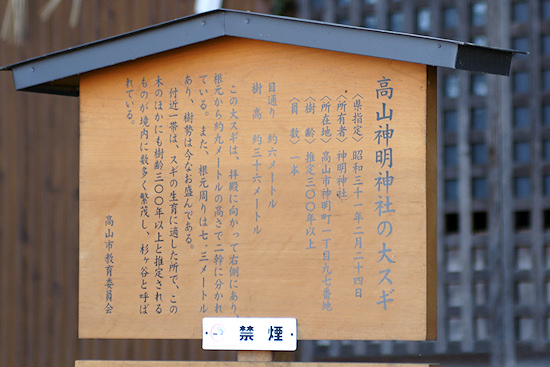 高山神明神社の大スギ
〈県指定〉昭和三十一年二月二十四日
〈所有者〉神明神社
〈所在地〉高山市神明町一丁目九七番地
〈樹齢〉推定三〇〇年以上
〈員数〉一本
目通り 約六メートル
樹高 約三十六メートル
この大スギは、拝殿に向かって右側にあり、
根元から約九メートルの高さで二幹に分かれ
ている。また、根元周りは七・三メートル
あり、樹勢は今なお盛んである。
付近一帯は、スギの生育に適した所で、この
木のほかにも樹齢三〇〇年以上と推定される
ものが境内に数多く繁茂し、杉ヶ谷と呼ば
れている。
高山市教育委員会
禁煙